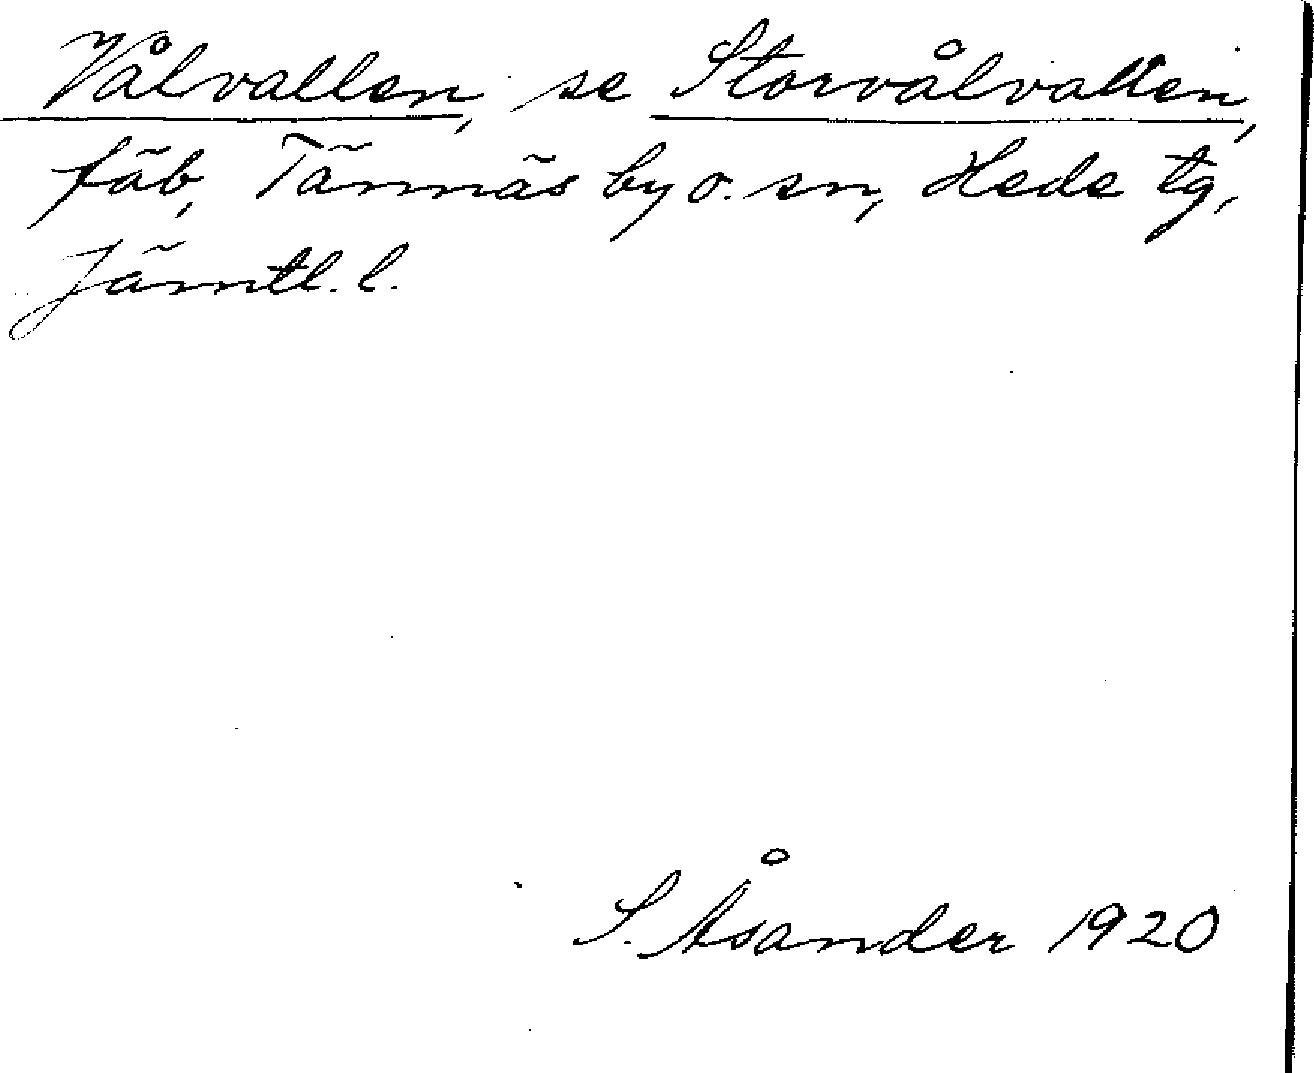 Vålvallen, se Storvålvallen,
fäb, Tännäs by o. sn, Hede tg,
Jämtl. l.
S. Åsander 1920